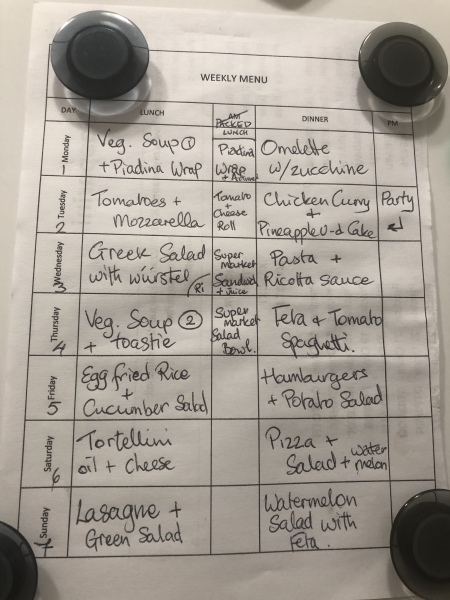 WEEKLY MENU
DAY LUNCH AM PACKED LUNCH DINNER PM
1 Monday
Veg. Soup 1
+ Piadina Wrap
Piadina
Wrap
Omelette
w/zucchine
2 Tuesday
Tomatoes +
Mozzarella
Tomato
+
Cheese
Roll
Chicken Curry
+
Pineapple U-d Cake
Party
3 Wednesday
Greek Salad
with würstel
Ri
Super
Market
Sandwd
+ Juice
Pasta +
Ricotta sauce
4 Thursday
Veg. Soup 2
+ toastie
Super
market
Salad
Bowl.
Feta & Tomato
Spaghetti.
5 Friday
Egg fried Rice
+
Cucumber Salad
Hamburgers
+ Potato Salad
6 Saturday
Tortellini
oil + cheese
Pizza +
Salad + water
melon
Sunday
Lasagne +
Green Salad
Watermelon
Salad with
Feta.